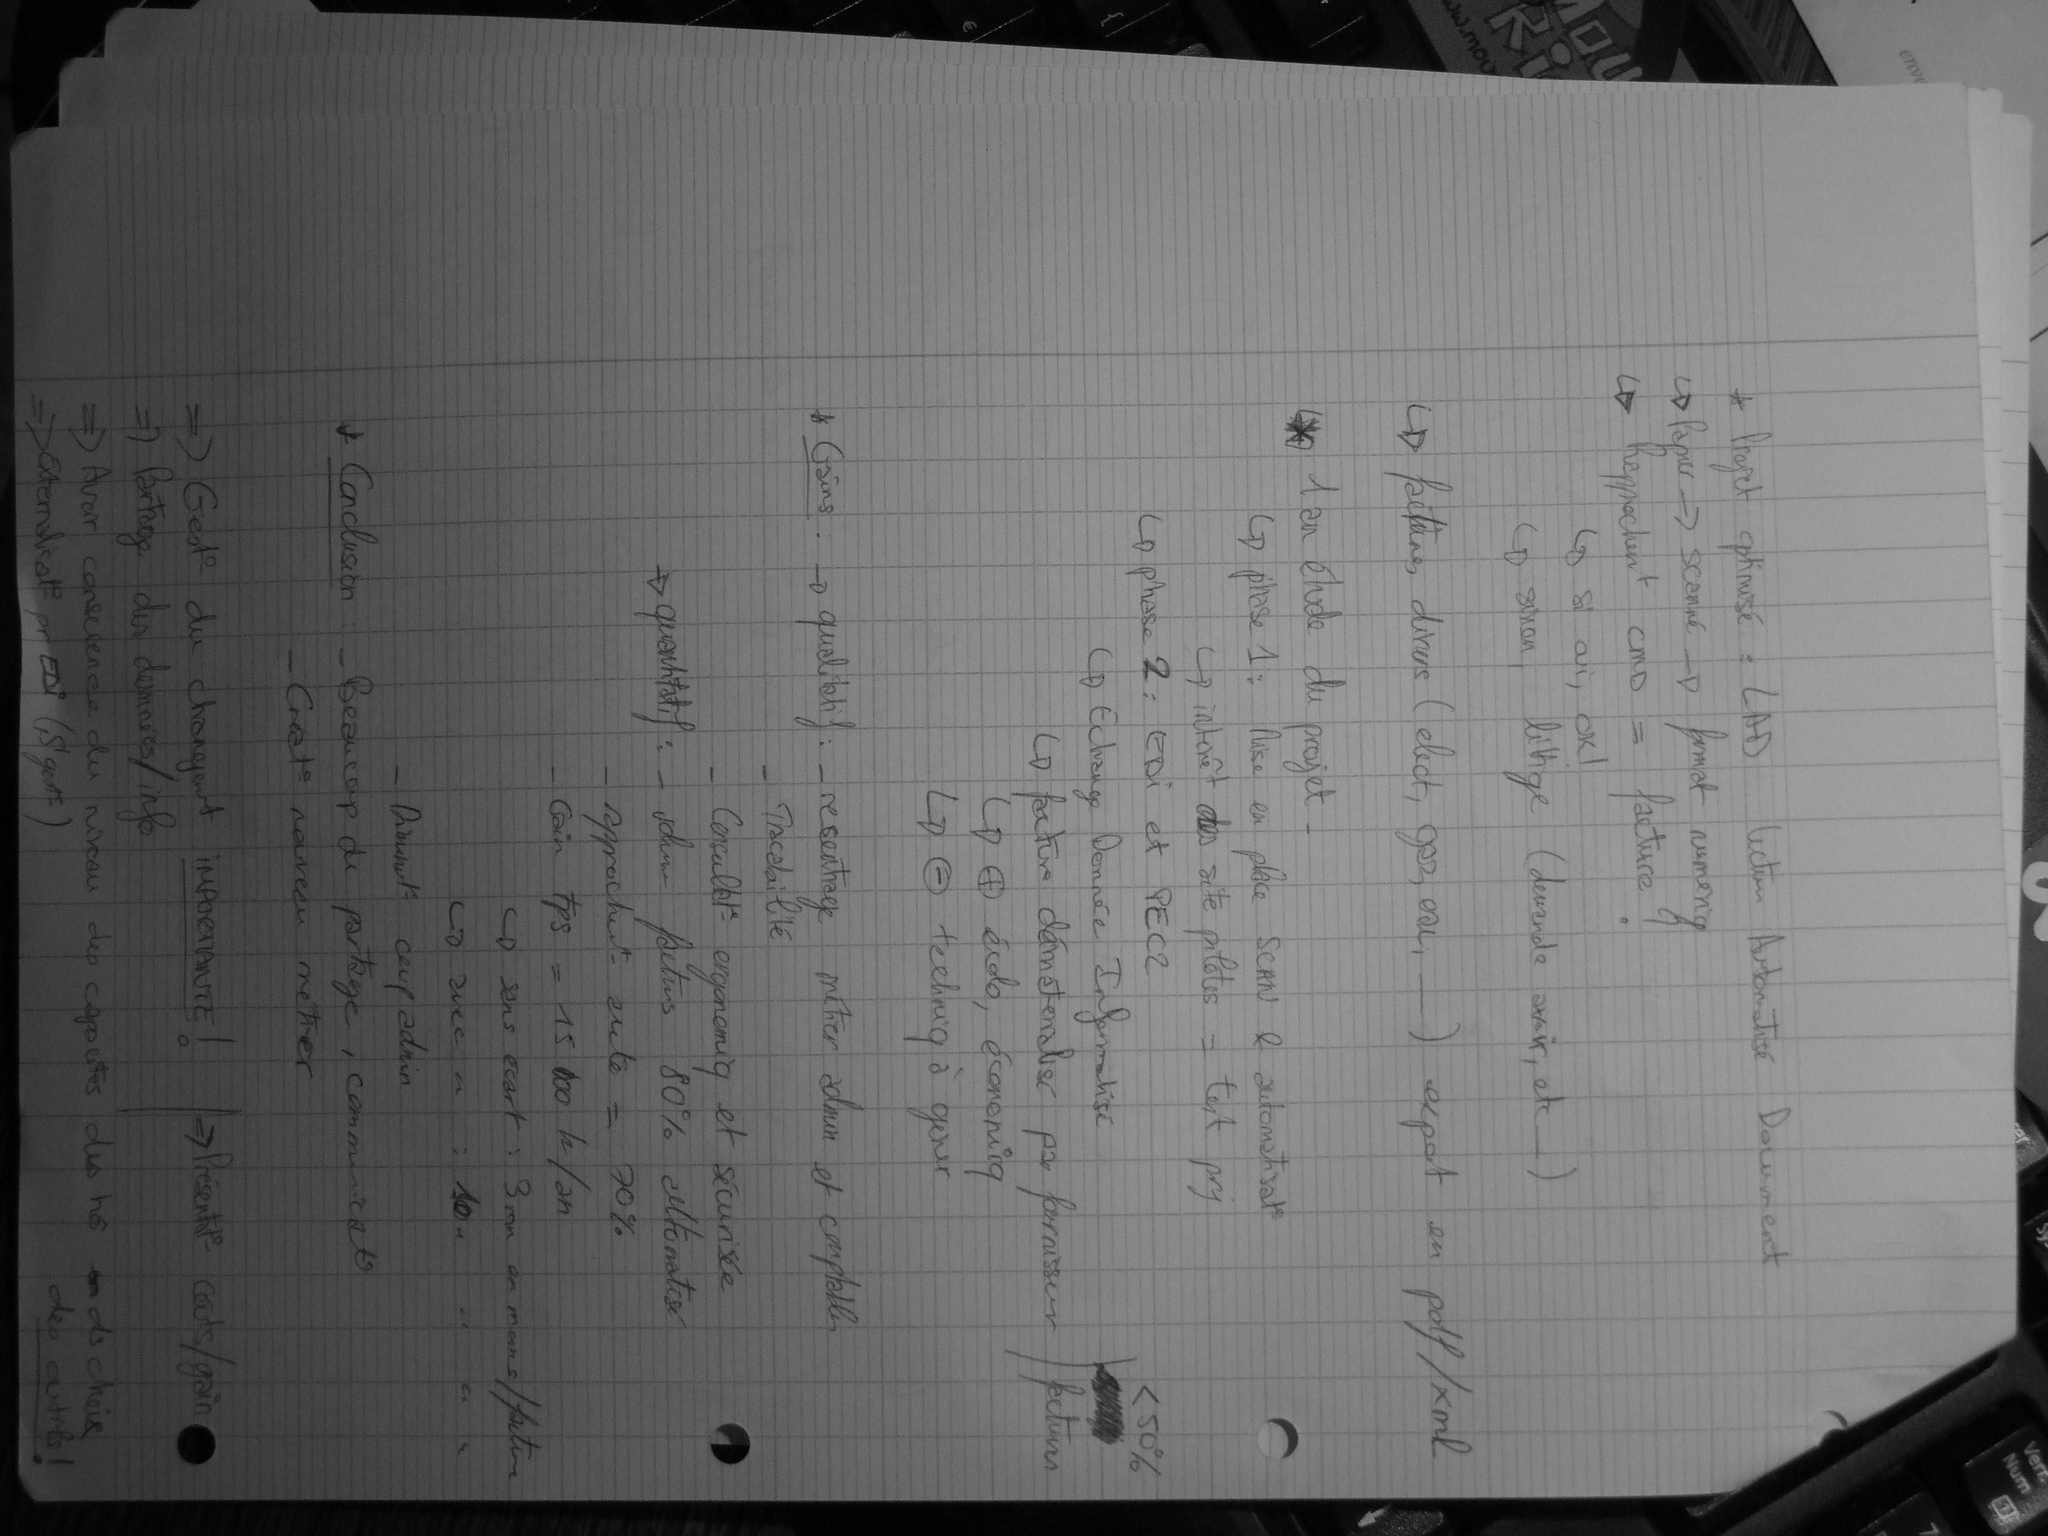 * Projet optimisé : LAD Lecture Automatisé Document
↳ Papier → scanné → format numériq
↳ Rapprochement CMD = facture.
↳ si oui, ok!
↳ sinon, litige (demande avoir, etc —)
↳ factures divers (elect, gaz, eau, —) export en pdf/xml
* 1 an étude du projet -
↳ phase 1 : Mise en place SCAN & automatisat°
↳ intérêt site pilotes = test proj
↳ phase 2 : EDI et PEC2
↳ Echange Donnée Informatisé
< 50%
↳ facture dématérialisé par fournisseur / factures
↳ ⊕ écolo, économiq
↳ ⊖ techniq à gérer
* Gains : → qualitatif : - recentrage métier admin et comptable
- Traçabilité
- Consultat° ergonomiq et sécurisée
→ quantitatif : - volume factures 80% automatisé
- rapprochet auto = 70%
- Gain tps = 15 000 h/an
↳ sans écart : 3 mn en moins/facture
↳ avec " : 10 " " " "
- Diminut° coup admin
* Conclusion : - Beaucoup de partage, communicat°
- Créat° nouveau métier
=> Gest° du changement IMPORTANTE! | => Présentat° couts/gain
=> Partage des données/info
=> Avoir conscience du niveau des capacités des h° ds choix
des outils!
=> externalisat° pr EDI (S'gent)